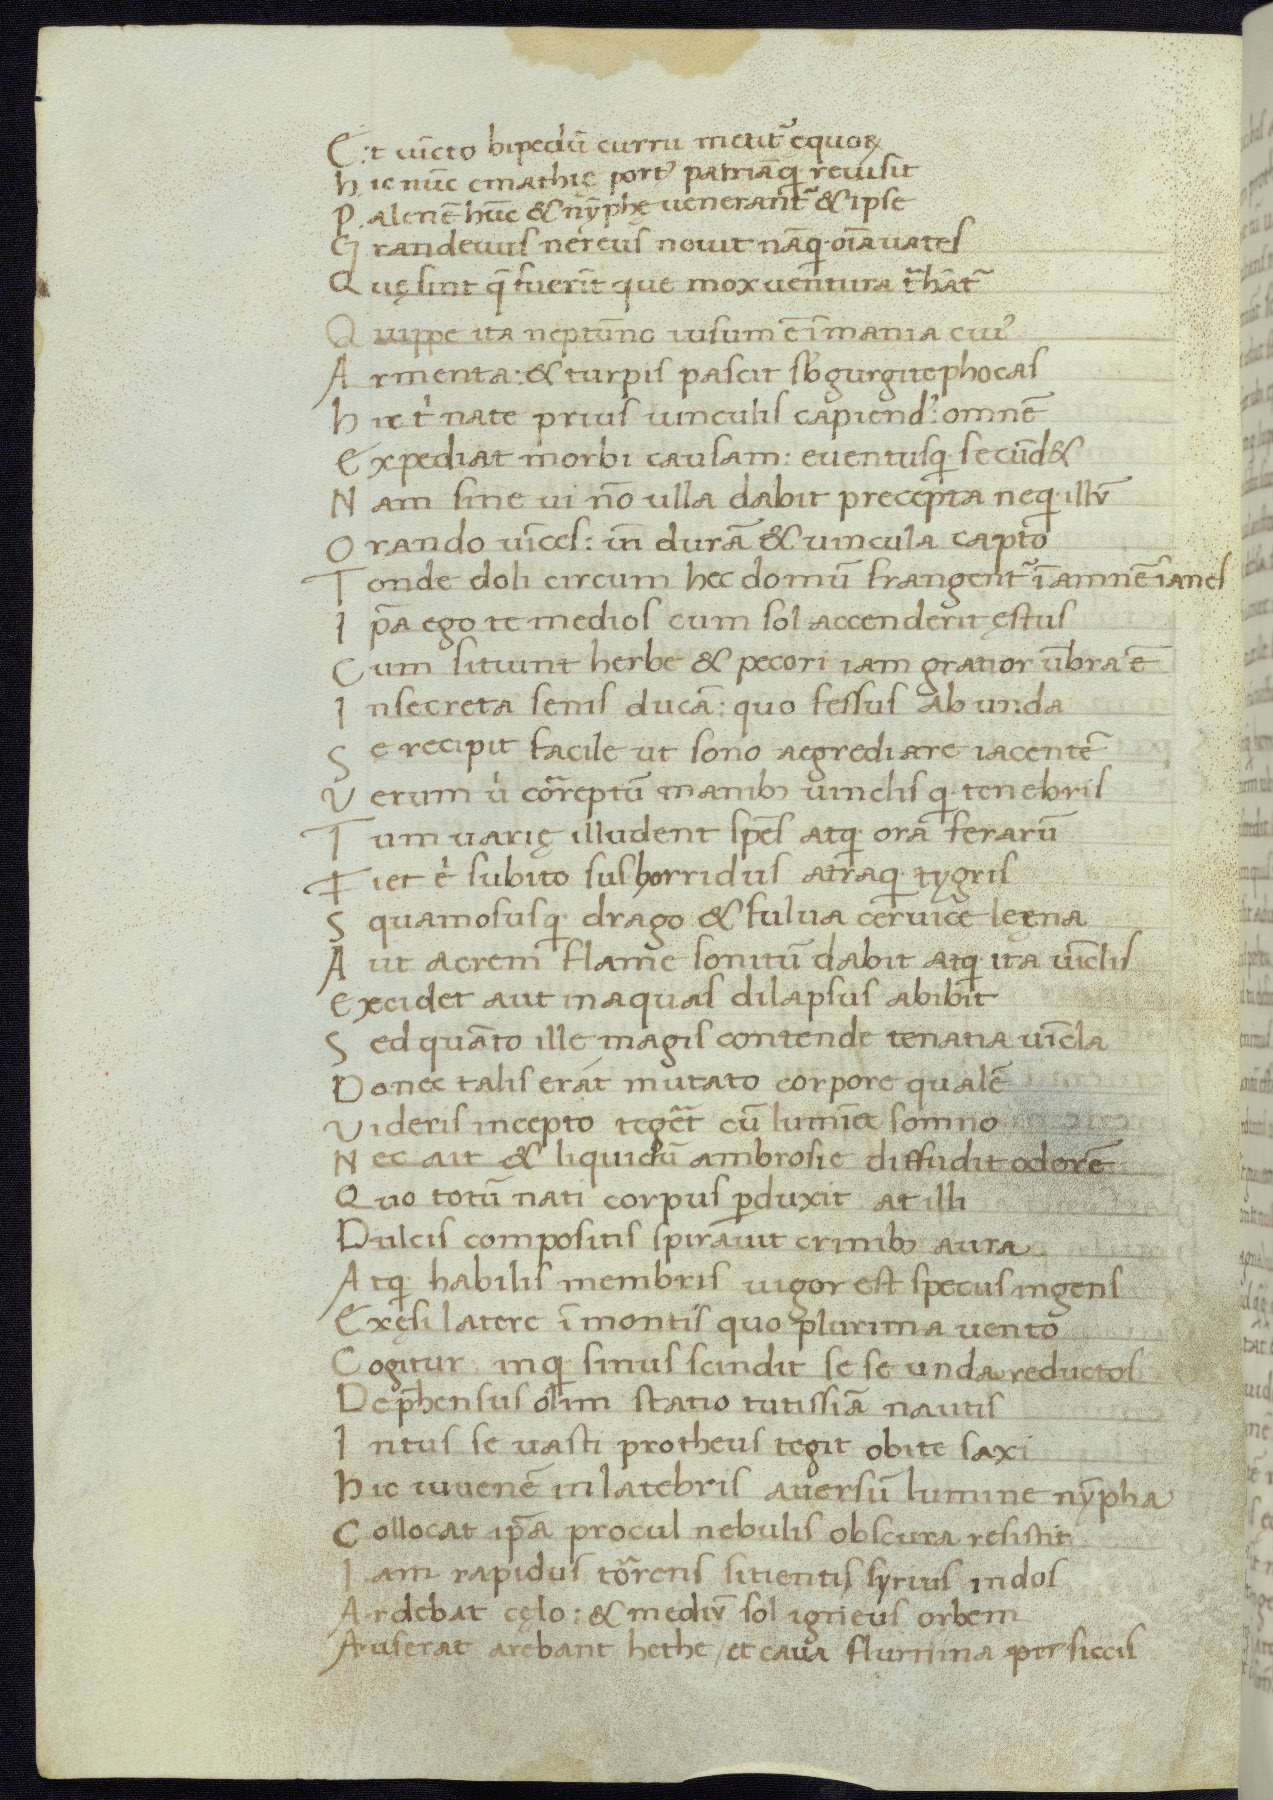 Et uīcto bipedū curru metit᷑ equoꝝ
hic nūc emathię port᾽ patriāqꝫ reuisit
Palenē hūc & nȳphę venerant᷑ & ipse
Grandeuus nereus nouit nāqꝫ oīa uates
Quęsint q̄ fuerīt que mox uentura t᷑hāt᷑
Quippe ita neptūno iusum ē īmania cui᾽
Armenta: & turpis pascit sb̓ gurgite phocas
hic t̓ nate prius uinculis capiend᾽: omnē
Expediat morbi causam: euentusqꝫ secūd&
Nam sine ui nō ulla dabit precepta neqꝫ illū
Orando uīces: īn durā & uincula capto
Tonde doli circum hec domū frangent᷑ īamnē īanes
Ip̄a ego te medios cum sol accenderit ęstus
Cum sitiunt herbe & pecori iam gratior ūbra ē
Insecreta senis ducā: quo fessus ab unda
Se recipit facile ut sono aegrediare iacentē
Verum ū cōreptū manibꝫ uinclis qꝫ tenebris
Tum uarię illudent sp̄es atqꝫ ora ferarū
Fiet .n̓. subito sus horridus atraqꝫ tygris
Squamosusqꝫ drago & fulua ceruice leęna
Aut acrem flame sonitū dabit atqꝫ ita uīclis
Excidet aut inaquas dilapsus abibit
Sed quāto ille magis contende tenatia uīcla
Donec talis erat mutato corpore qualē
Videris incepto tegēt cū lumīa somno
Nec ait & liquidū ambrosie diffudit odorē
Quo totū nati corpus ꝑduxit at illi
Dulcis compositis spirauit crinibꝫ aura
Atqꝫ habilis membris uigor est specus ingens
Exęsi latere ī montis quo plurima uento
Cogitur inqꝫ sinus scindit se se unda reductos
Dep̄hensus olim statio tutissīa nautis
Intus se uasti protheus tegit obite saxi
hic iuuenē in latebris auersū lumine nȳpha
Collocat ip̄a procul nebulis obscura resistit
Iam rapidus tōrens sitientis syrius indos
Ardebat cęlo: & mediū sol igneus orbem
Auserat arebant hethe / et caua flumina per siccis